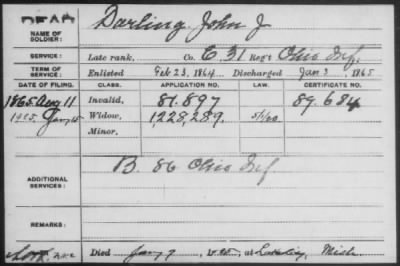 DEAD
NAME OF SOLDIER: Darling John J
SERVICE: Late rank, Co. E. 31 Reg't Ohio Inf.
TERM OF SERVICE: Enlisted Feb 23, 1864, Discharged Jan 3, 1865
DATE OF FILING. CLASS. APPLICATION NO. LAW. CERTIFICATE NO.
1865 Aug 11 Invalid, 87.897 89.684
1925, Jany 15 Widow, 1,228,289.
Minor,
ADDITIONAL SERVICES: B. 86 Ohio Inf
REMARKS:
Died Jany 7, 1925, at Mich